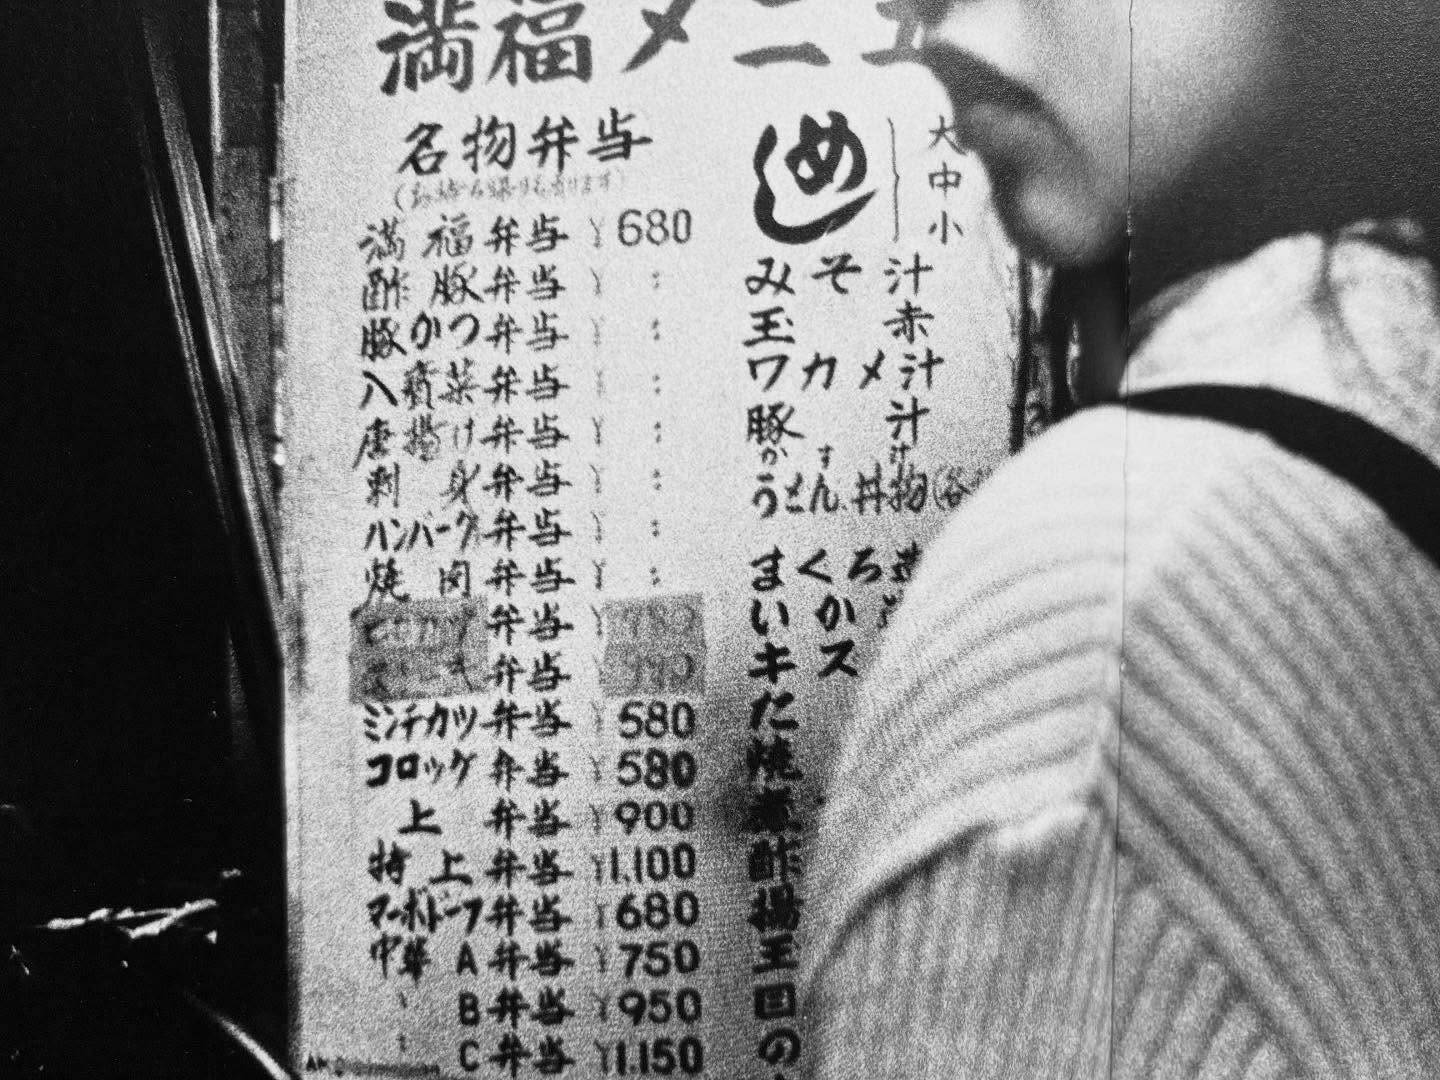 満福メニュ
名物弁当
満福弁当 ¥680
酢豚弁当 ¥ :
豚かつ弁当 ¥ :
八宝菜弁当 ¥ :
唐揚け弁当 ¥ :
刺身弁当 ¥ :
ハンバーグ弁当 ¥ :
焼肉弁当 ¥ :
弁当
弁当
ミンチカツ弁当 ¥580
コロッケ弁当 ¥580
上弁当 ¥900
特上弁当 ¥1.100
マーボドーフ弁当 ¥680
中華A弁当 ¥750
〃B弁当 ¥950
〃C弁当 ¥1.150
めし 大中小
みそ汁
玉 赤
ワカメ汁
豚汁
かす汁
うどん.丼物(各
まくろ造
いか
キス
た
焼
煮
酢
揚
玉
回
の